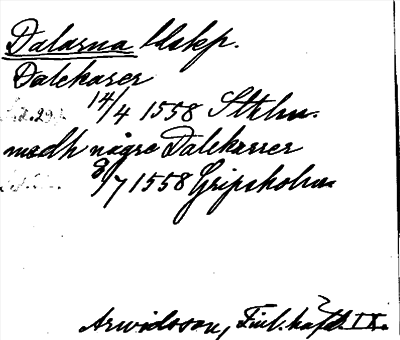 Dalarna ldskp.
Dalekarer
14/4 1558 Sthlm.
medh någre Dalekarrer
8/7 1558 Gripsholm
Arwidsson, Finl. häfd. IX.